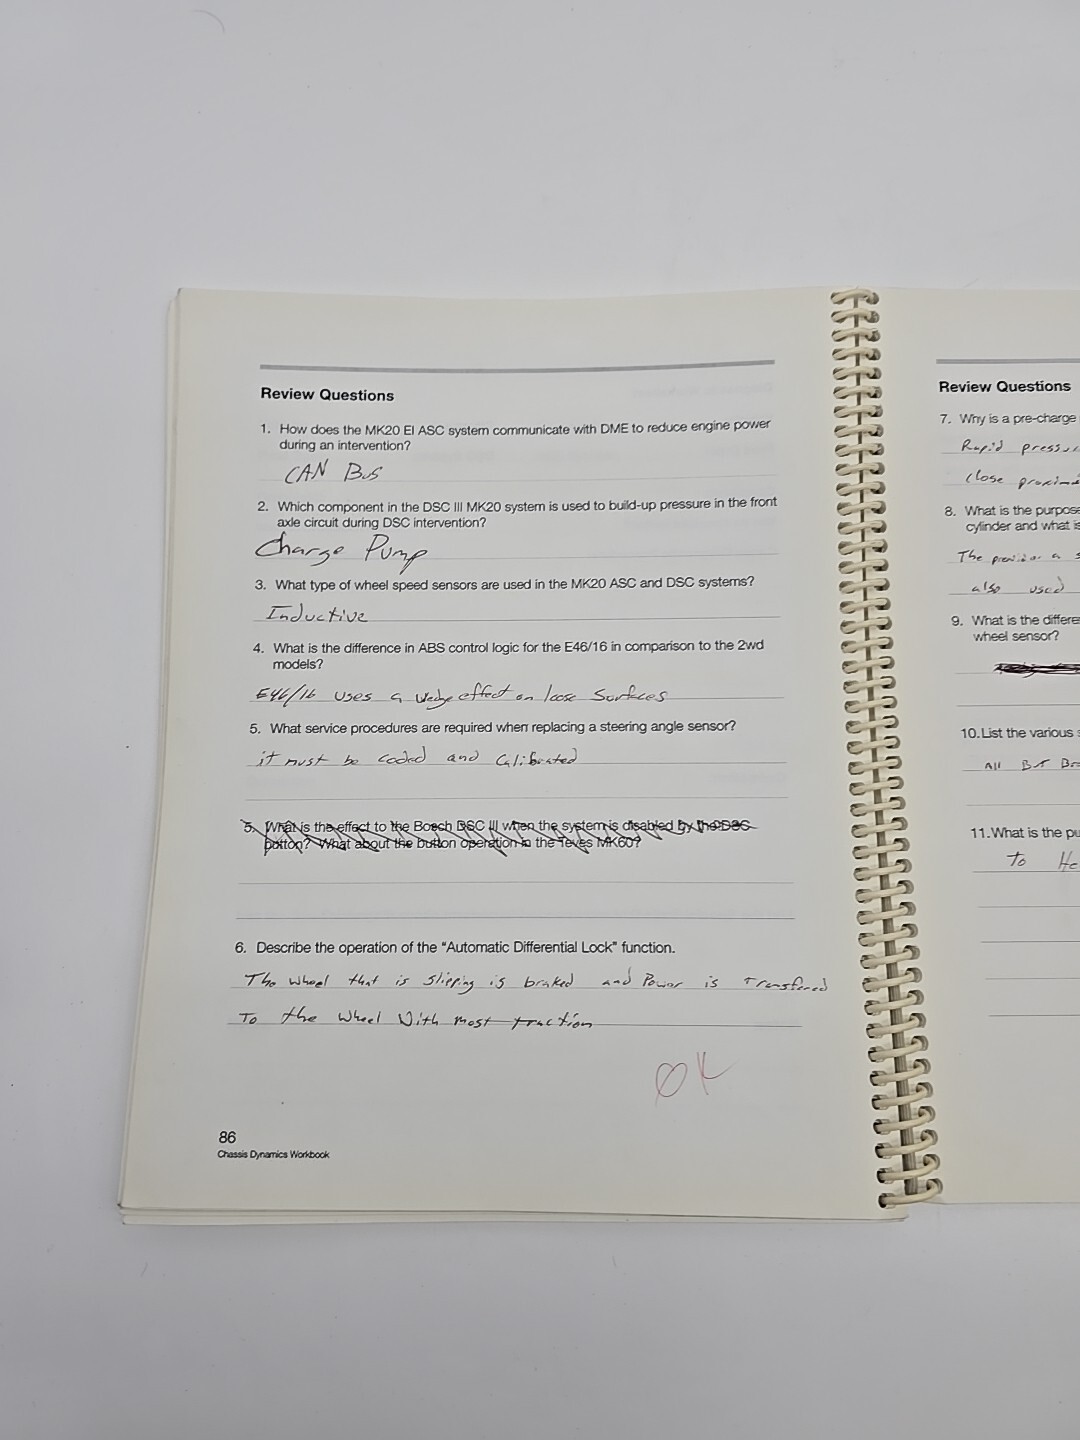 Review Questions
1. How does the MK20 EI ASC system communicate with DME to reduce engine power
during an intervention?
CAN Bus
2. Which component in the DSC III MK20 system is used to build-up pressure in the front
axle circuit during DSC intervention?
Charge Pump
3. What type of wheel speed sensors are used in the MK20 ASC and DSC systems?
Inductive
4. What is the difference in ABS control logic for the E46/16 in comparison to the 2wd
models?
E46/16 uses a wedge effect on loose surfaces
5. What service procedures are required when replacing a steering angle sensor?
it must be coded and Calibrated
5. What is the effect to the Bosch DSC III when the system is disabled by the DSC
button? What about the button operation in the Teves MK60?
6. Describe the operation of the "Automatic Differential Lock" function.
The wheel that is slipping is braked and Power is Transfered
To the wheel With most traction
OK
86
Chassis Dynamics Workbook
Review Questions
7. Why is a pre-charge
Rapid
close
8. What is the purpose
cylinder and what is
The a
also used
9. What is the
wheel sensor?
10. List the various
All
11. What is the
To